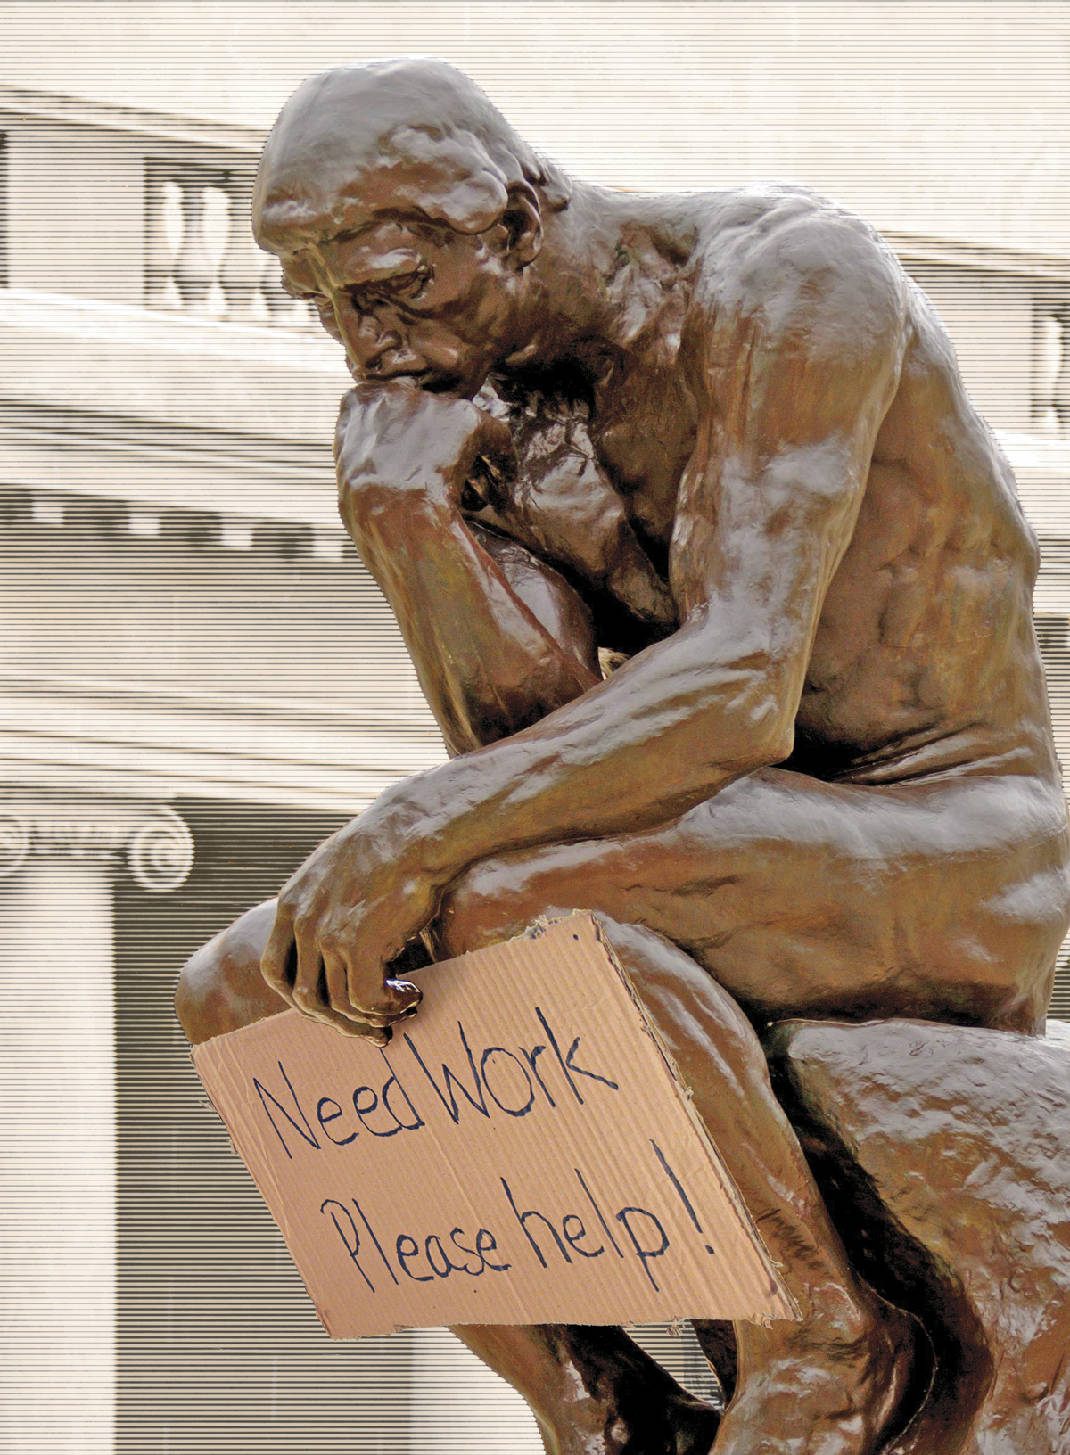 Need Work
Please help!